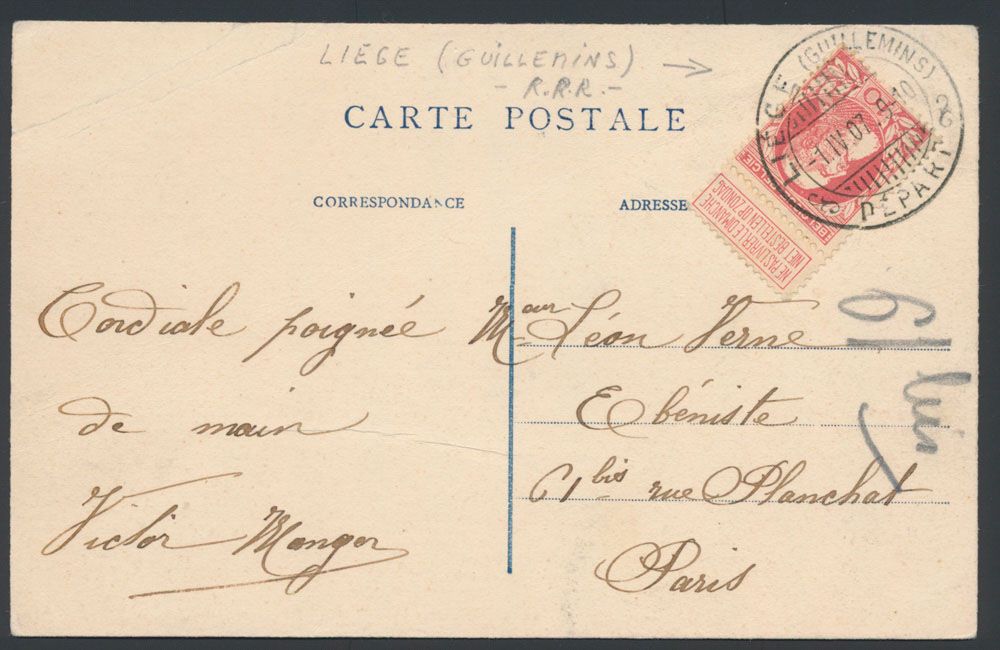 LIEGE (GUILLEMINS) →
- R.R.R. -
LIEGE (GUILLEMINS)
1 IV 07
DÉPART
CARTE POSTALE
CORRESPONDANCE
ADRESSE
NE PAS LIVRER LE DIMANCHE
NIET BESTELLEN OP ZONDAG
Cordiale poignée
de main
Victor
Léon Verné
Ebéniste
61 bis rue Planchat
Paris
61